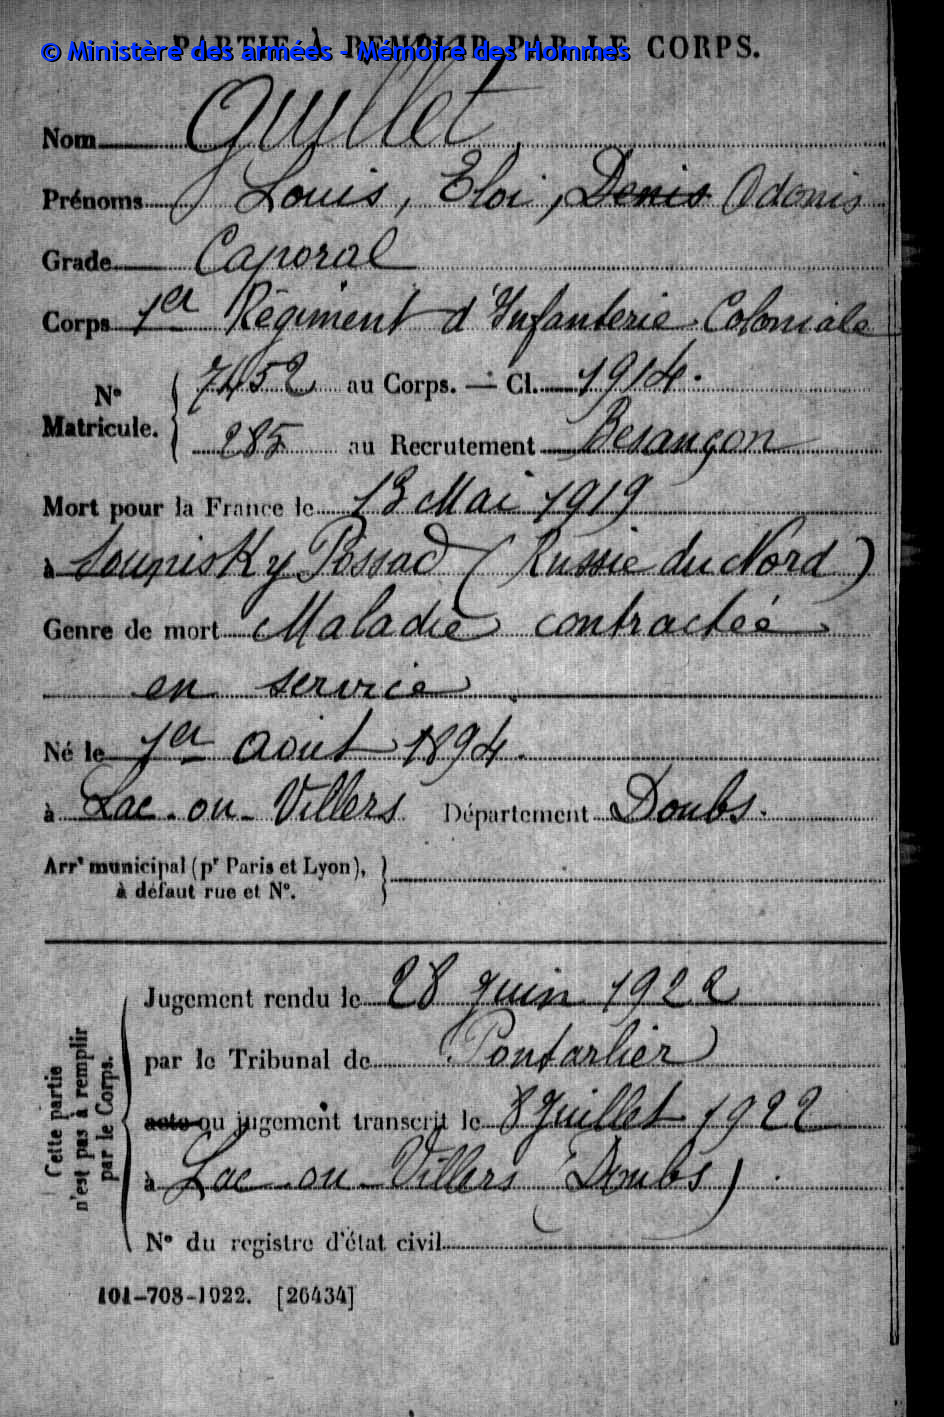 PARTIE À REMPLIR PAR LE CORPS.
© Ministère des armées - Mémoire des Hommes
Nom Guillet
Prénoms Louis, Eloi, Denis Odonis
Grade Caporal
Corps 1er Régiment d'Infanterie Coloniale
N° Matricule. 7452 au Corps. — Cl. 1914.
285 au Recrutement Besançon
Mort pour la France le 13 Mai 1919
à Possad (Russie du Nord)
Genre de mort Maladie contractée
en service
Né le 1er août 1894.
à Lac-ou-Villers Département Doubs.
Arrt municipal (pr Paris et Lyon),
à défaut rue et N°.
Cette partie
n'est pas à remplir
par le Corps.
Jugement rendu le 28 Juin 1922
par le Tribunal de Pontarlier
acte ou jugement transcrit le 8 Juillet 1922
à Lac-ou-Villers (Doubs)
N° du registre d'état civil
101-708-1922. [26434]